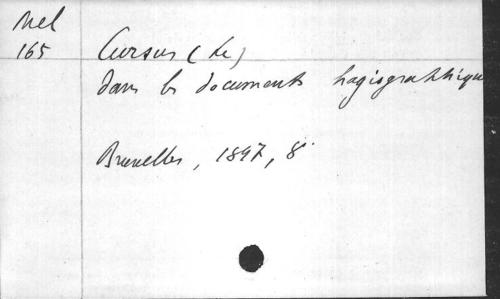 Mel
165
Cursus (Le)
dans les documents hagiographiqu
Bruxelles, 1897, 8°